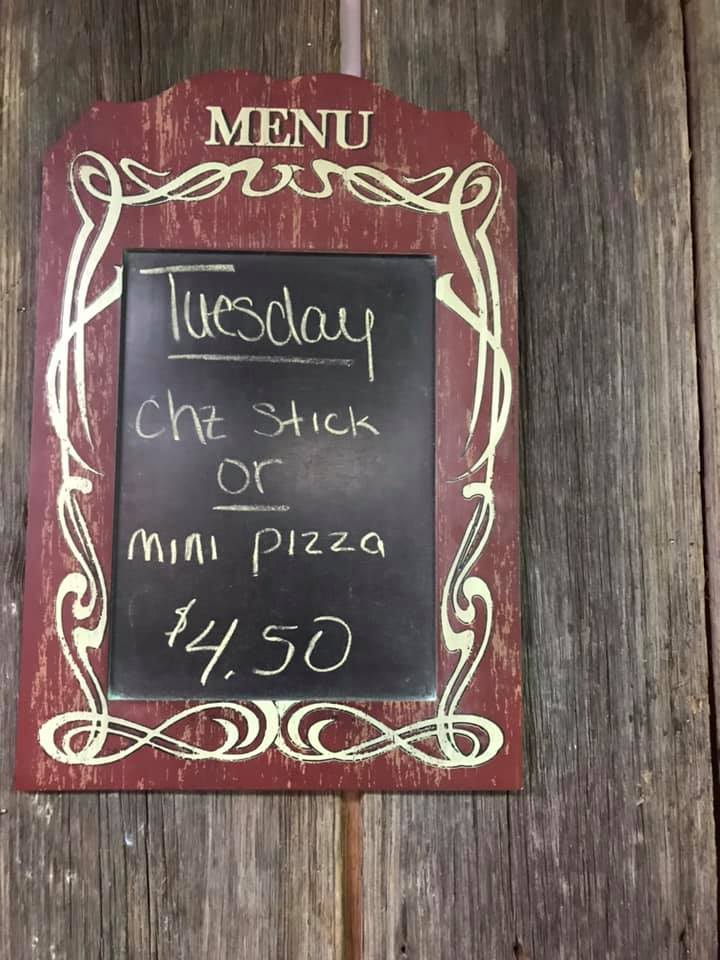 MENU
Tuesday
chz stick
or
mini pizza
$4.50